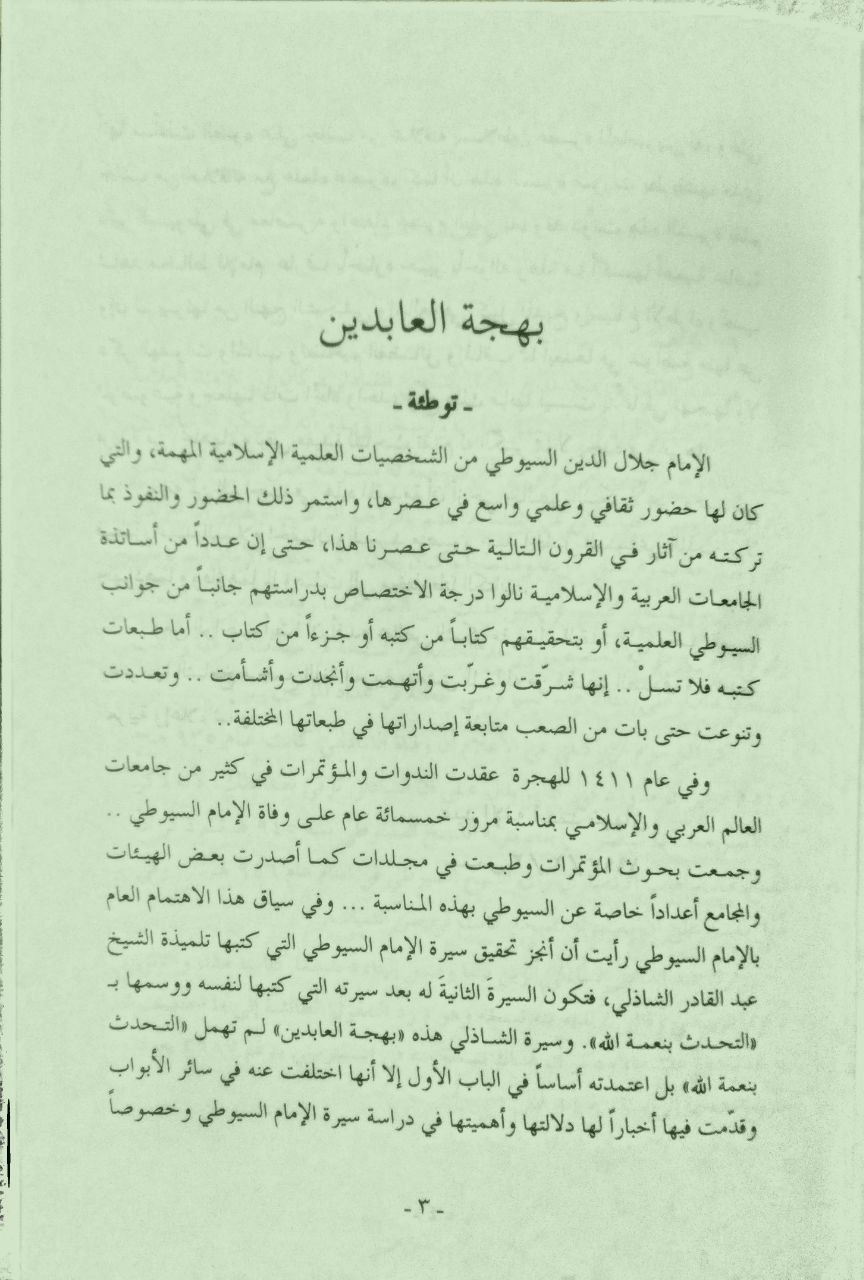 بهجة العابدين
ـ توطئة ـ
الإمام جلال الدين السيوطي من الشخصيات العلمية الإسلامية المهمة، والتي
كان لها حضور ثقافي وعلمي واسع في عصرها، واستمر ذلك الحضور والنفوذ بما
تركته من آثار في القرون التالية حتى عصرنا هذا، حتى إن عدداً من أساتذة
الجامعات العربية والإسلامية نالوا درجة الاختصاص بدراستهم جانباً من جوانب
السيوطي العلمية، أو بتحقيقهم كتاباً من كتبه أو جزءاً من كتاب .. أما طبعات
كتبه فلا تسلْ .. إنها شرّقت وغرّبت وأتهمت وأنجدت وأشأمت .. وتعددت
وتنوعت حتى بات من الصعب متابعة إصداراتها في طبعاتها المختلفة..
وفي عام ١٤١١ للهجرة عقدت الندوات والمؤتمرات في كثير من جامعات
العالم العربي والإسلامي بمناسبة مرور خمسمائة عام على وفاة الإمام السيوطي ..
وجمعت بحوث المؤتمرات وطبعت في مجلدات كما أصدرت بعض الهيئات
والمجامع أعداداً خاصة عن السيوطي بهذه المناسبة ... وفي سياق هذا الاهتمام العام
بالإمام السيوطي رأيت أن أنجز تحقيق سيرة الإمام السيوطي التي كتبها تلميذة الشيخ
عبد القادر الشاذلي، فتكون السيرةَ الثانيةَ له بعد سيرته التي كتبها لنفسه ووسمها بـ
«التحدث بنعمة الله». وسيرة الشاذلي هذه «بهجة العابدين» لم تهمل «التحدث
بنعمة الله» بل اعتمدته أساساً في الباب الأول إلا أنها اختلفت عنه في سائر الأبواب
وقدّمت فيها أخباراً لها دلالتها وأهميتها في دراسة سيرة الإمام السيوطي وخصوصاً
ـ ٣ ـ